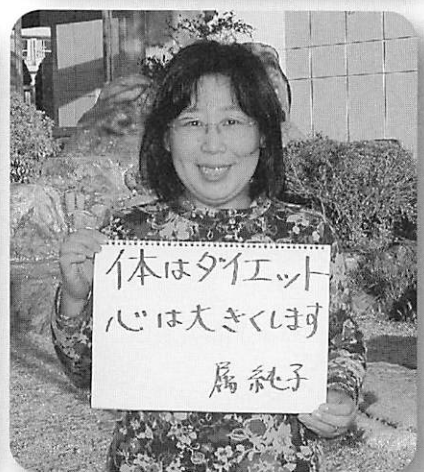 体はダイエット
心は大きくします
属 純子